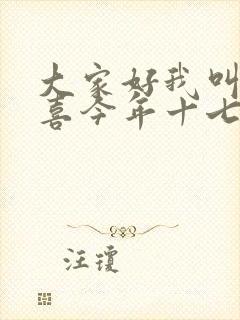 大家好我叫
喜今年十七
汪琼